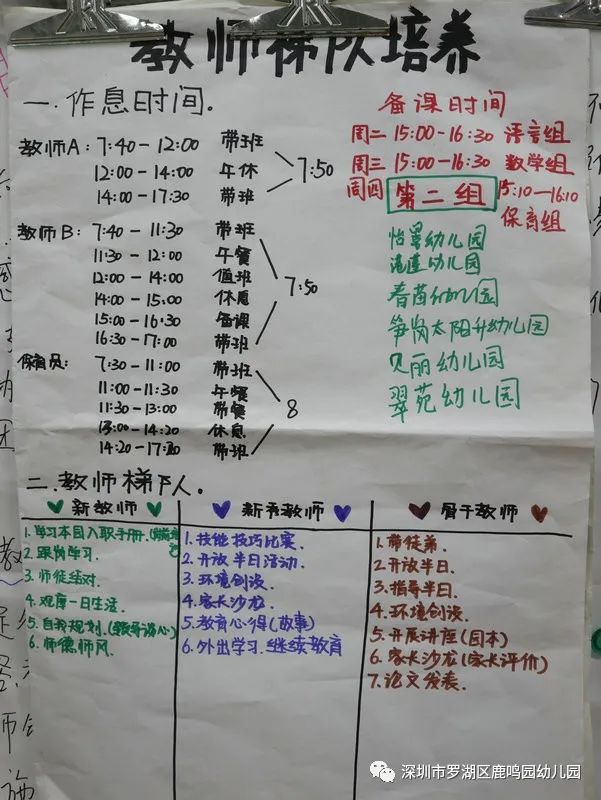 教师梯队培养
一.作息时间.
教师A: 7:40-12:00 带班
12:00-14:00 午休
14:00-17:30 带班
7:50
教师B: 7:40-11:30 带班
11:30-12:00 午餐
12:00-14:00 值班
14:00-15:00 休息
15:00-16:30 备课
16:30-17:00 带班
7:50
保育员: 7:30-11:00 带班
11:00-11:30 午餐
11:30-13:00 带餐
13:00-14:20 休息
14:20-17:20 带班
8
备课时间
周二 15:00-16:30 语言组
周三 15:00-16:30 数学组
周四 第二组 15:10-16:10
保育组
怡景幼儿园
港莲幼儿园
春茵幼儿园
笋岗太阳升幼儿园
贝丽幼儿园
翠苑幼儿园
二.教师梯队.
新教师
1.学习本园入职手册.
2.跟岗学习.
3.师徒结对.
4.观摩一日生活.
5.自我规划.(领导谈心)
6.师德师风.
新秀教师
1.技能技巧比赛.
2.开放半日活动.
3.环境创设.
4.家长沙龙.
5.教育心得(故事)
6.外出学习.继续教育
骨干教师
1.带徒弟.
2.开放半日.
3.指导半日.
4.环境创设.
5.开展讲座(园本)
6.家长沙龙(家长评价)
7.论文发表.
深圳市罗湖区鹿鸣园幼儿园